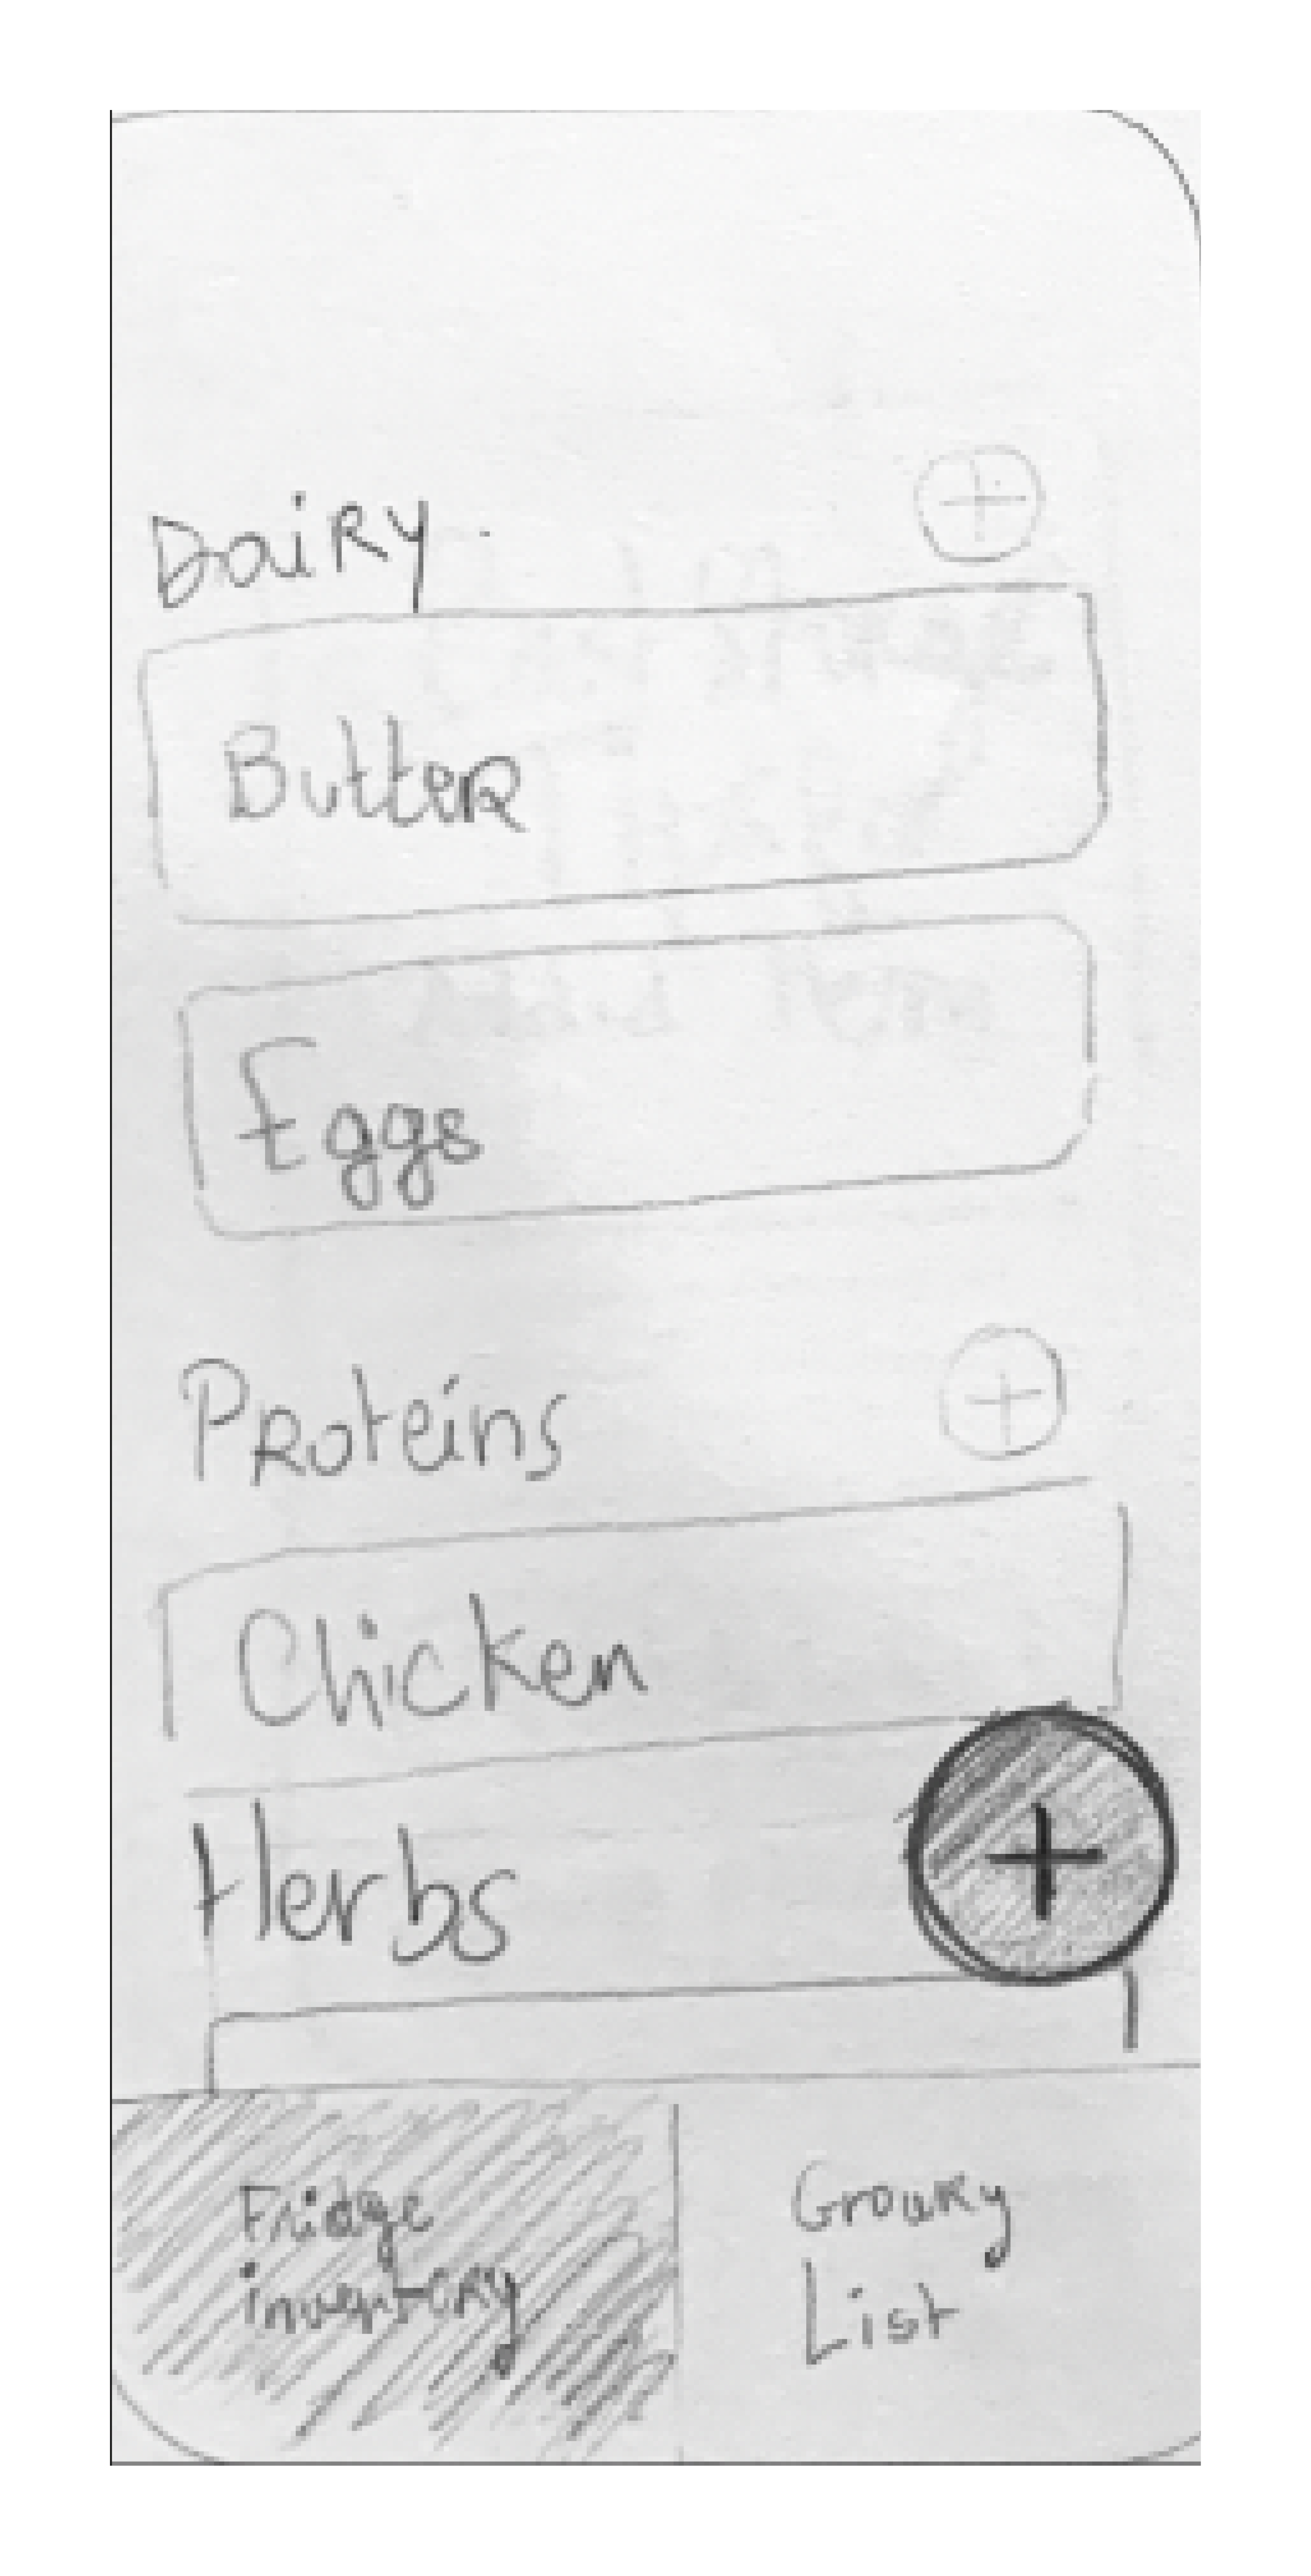 Dairy
Butter
Eggs
Proteins
Chicken
Herbs
Fridge
inventory
Grocery
List